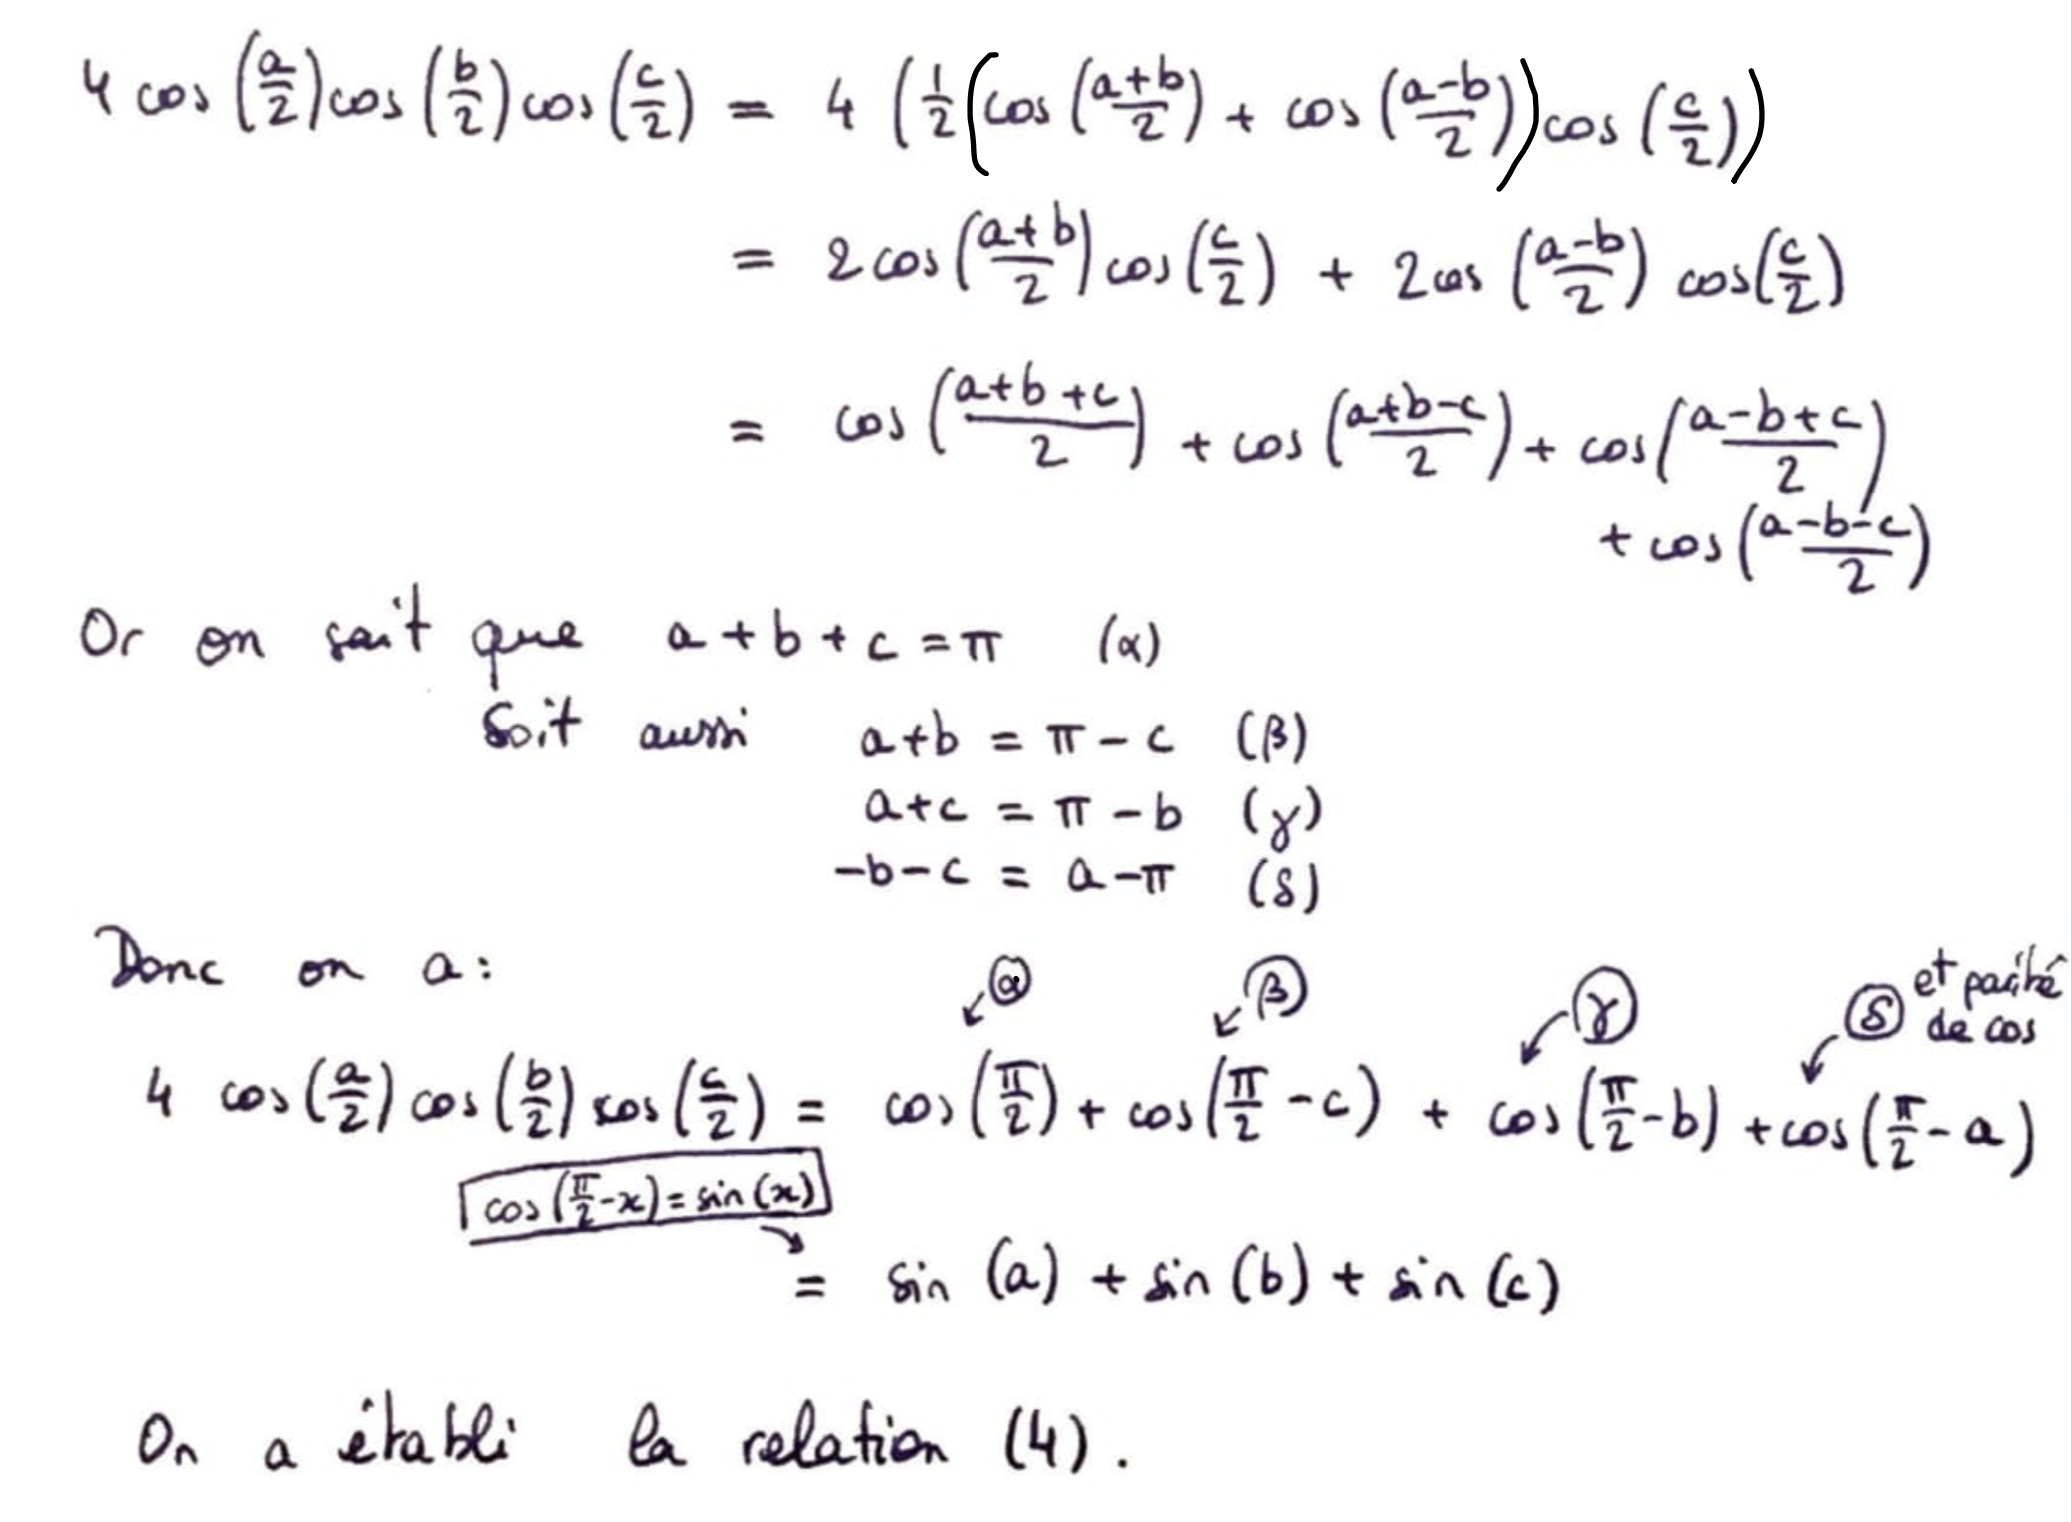 4 cos (a/2) cos (b/2) cos (c/2) = 4 (1/2 (cos ((a+b)/2) + cos ((a-b)/2)) cos (c/2))
= 2 cos ((a+b)/2) cos (c/2) + 2 cos ((a-b)/2) cos (c/2)
= cos ((a+b+c)/2) + cos ((a+b-c)/2) + cos ((a-b+c)/2)
+ cos ((a-b-c)/2)
Or on sait que a + b + c = π (α)
Soit aussi a+b = π - c (β)
a+c = π - b (γ)
-b-c = a-π (δ)
Donc on a :
α β γ δ et parité de cos
4 cos (a/2) cos (b/2) cos (c/2) = cos (π/2) + cos (π/2 - c) + cos (π/2 - b) + cos (π/2 - a)
cos (π/2 - x) = sin (x)
= sin (a) + sin (b) + sin (c)
On a établi la relation (4).